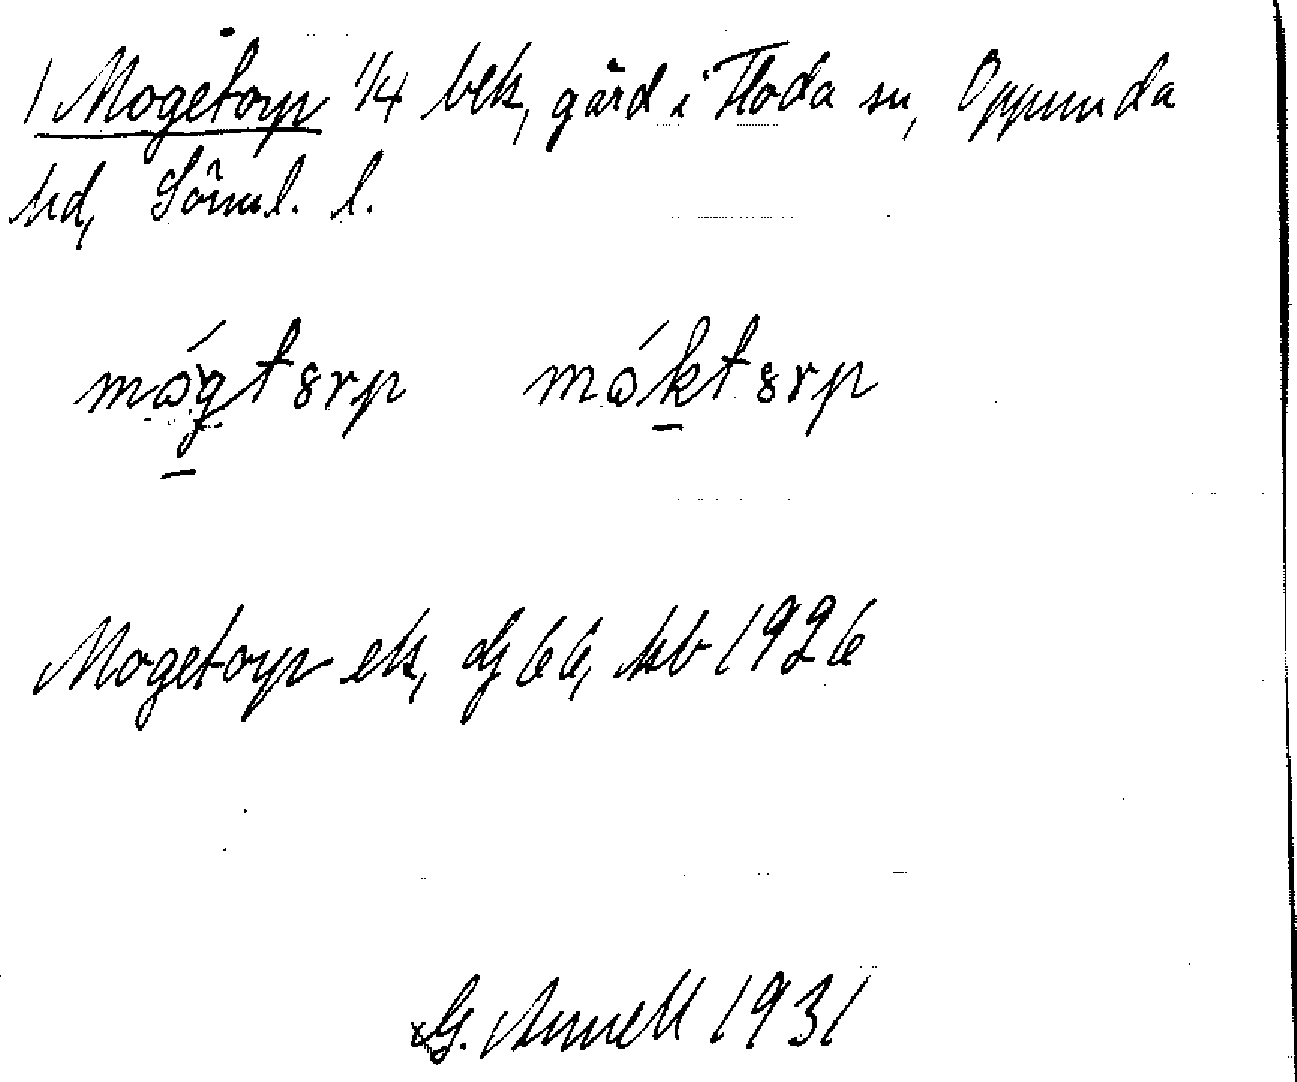 1 Mogetorp 1/4 bek, gård i Floda sn, Oppunda
hd, Sörml. l.
mógtɜrp móktɜrp
Mogetorp ek, G 66, kb 1926
G. Annell 1931